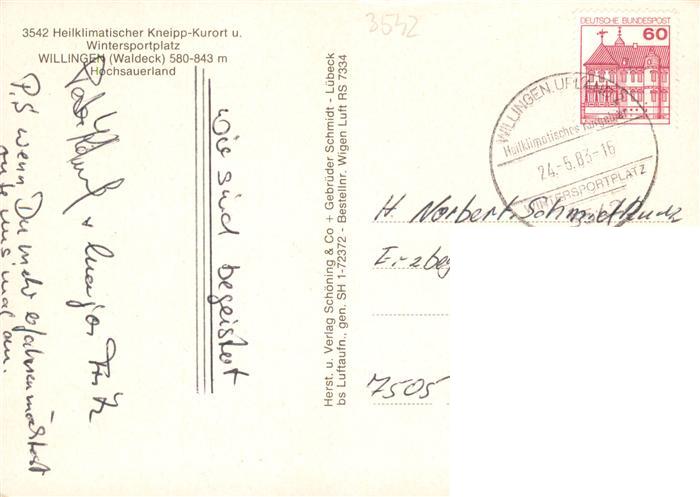 3542 Heilklimatischer Kneipp-Kurort u.
Wintersportplatz
WILLINGEN (Waldeck) 580-843 m
Hochsauerland
wir sind begeistert
+ Fritz
P.S wenn Du mehr erfahren möchtest
rufe uns mal an.
Herst. u. Verlag Schöning & Co + Gebrüder Schmidt - Lübeck
bs Luftaufn., gen. SH 1-72372 - Bestellnr. Wigen Luft RS 7334
3542
DEUTSCHE BUNDESPOST
60
WILLINGEN, UPLAND
Heilklimatisches
24.-5.83-16
WINTERSPORTPLATZ
3542
H. Norbert
Erzbeg
7505